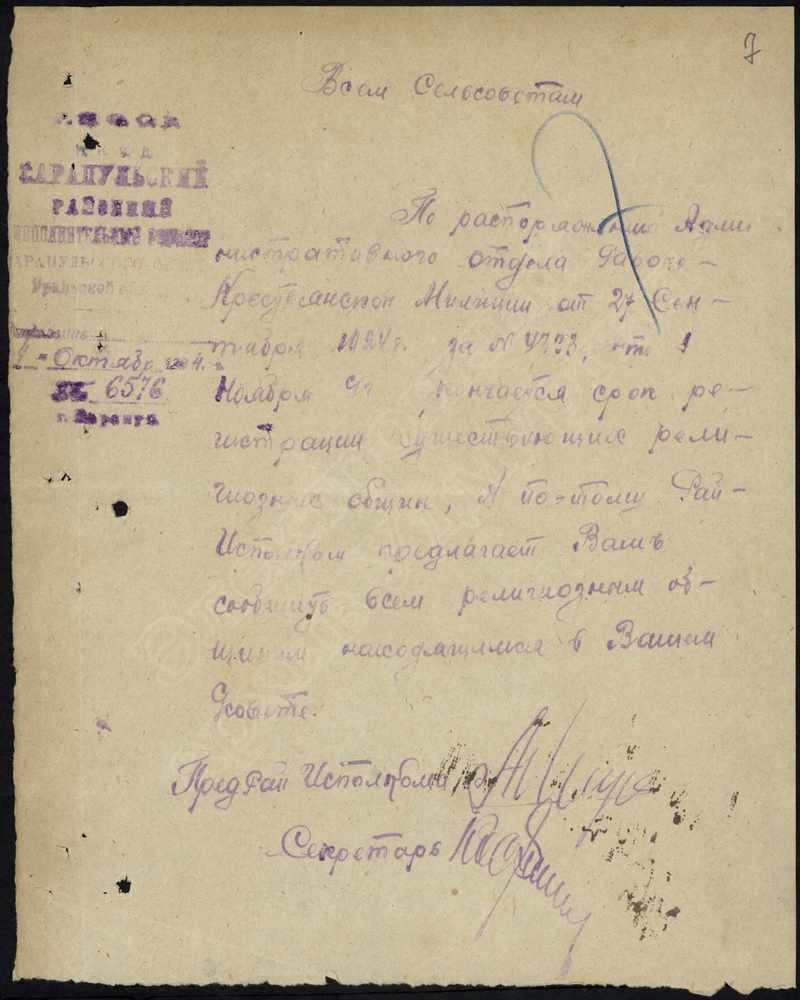 7
Всем Сельсоветам
Р.С.Ф.С.Р.
Н К В Д
САРАПУЛЬСКИЙ
РАЙОННЫЙ
ИСПОЛНИТЕЛЬНЫЙ КОМИТЕТ
САРАПУЛЬСКОГО
Уральской
Октябр 4
№ 6576
г. Сарапул
По распоряжению Адми
нистративного отдела Рабоче-
Крестьянской Милиции от 27 Сен-
тября 1924 г. за № 4733, что 1
Ноября кончается срок ре-
гистрации существующие рели-
гиозные общин, А по-тому Рай-
Исполком предлагает Вамъ
сообщить всем религиозным об-
щинам находящимся в Вашем
Совете.
ПредРай Исполкома
Секретарь